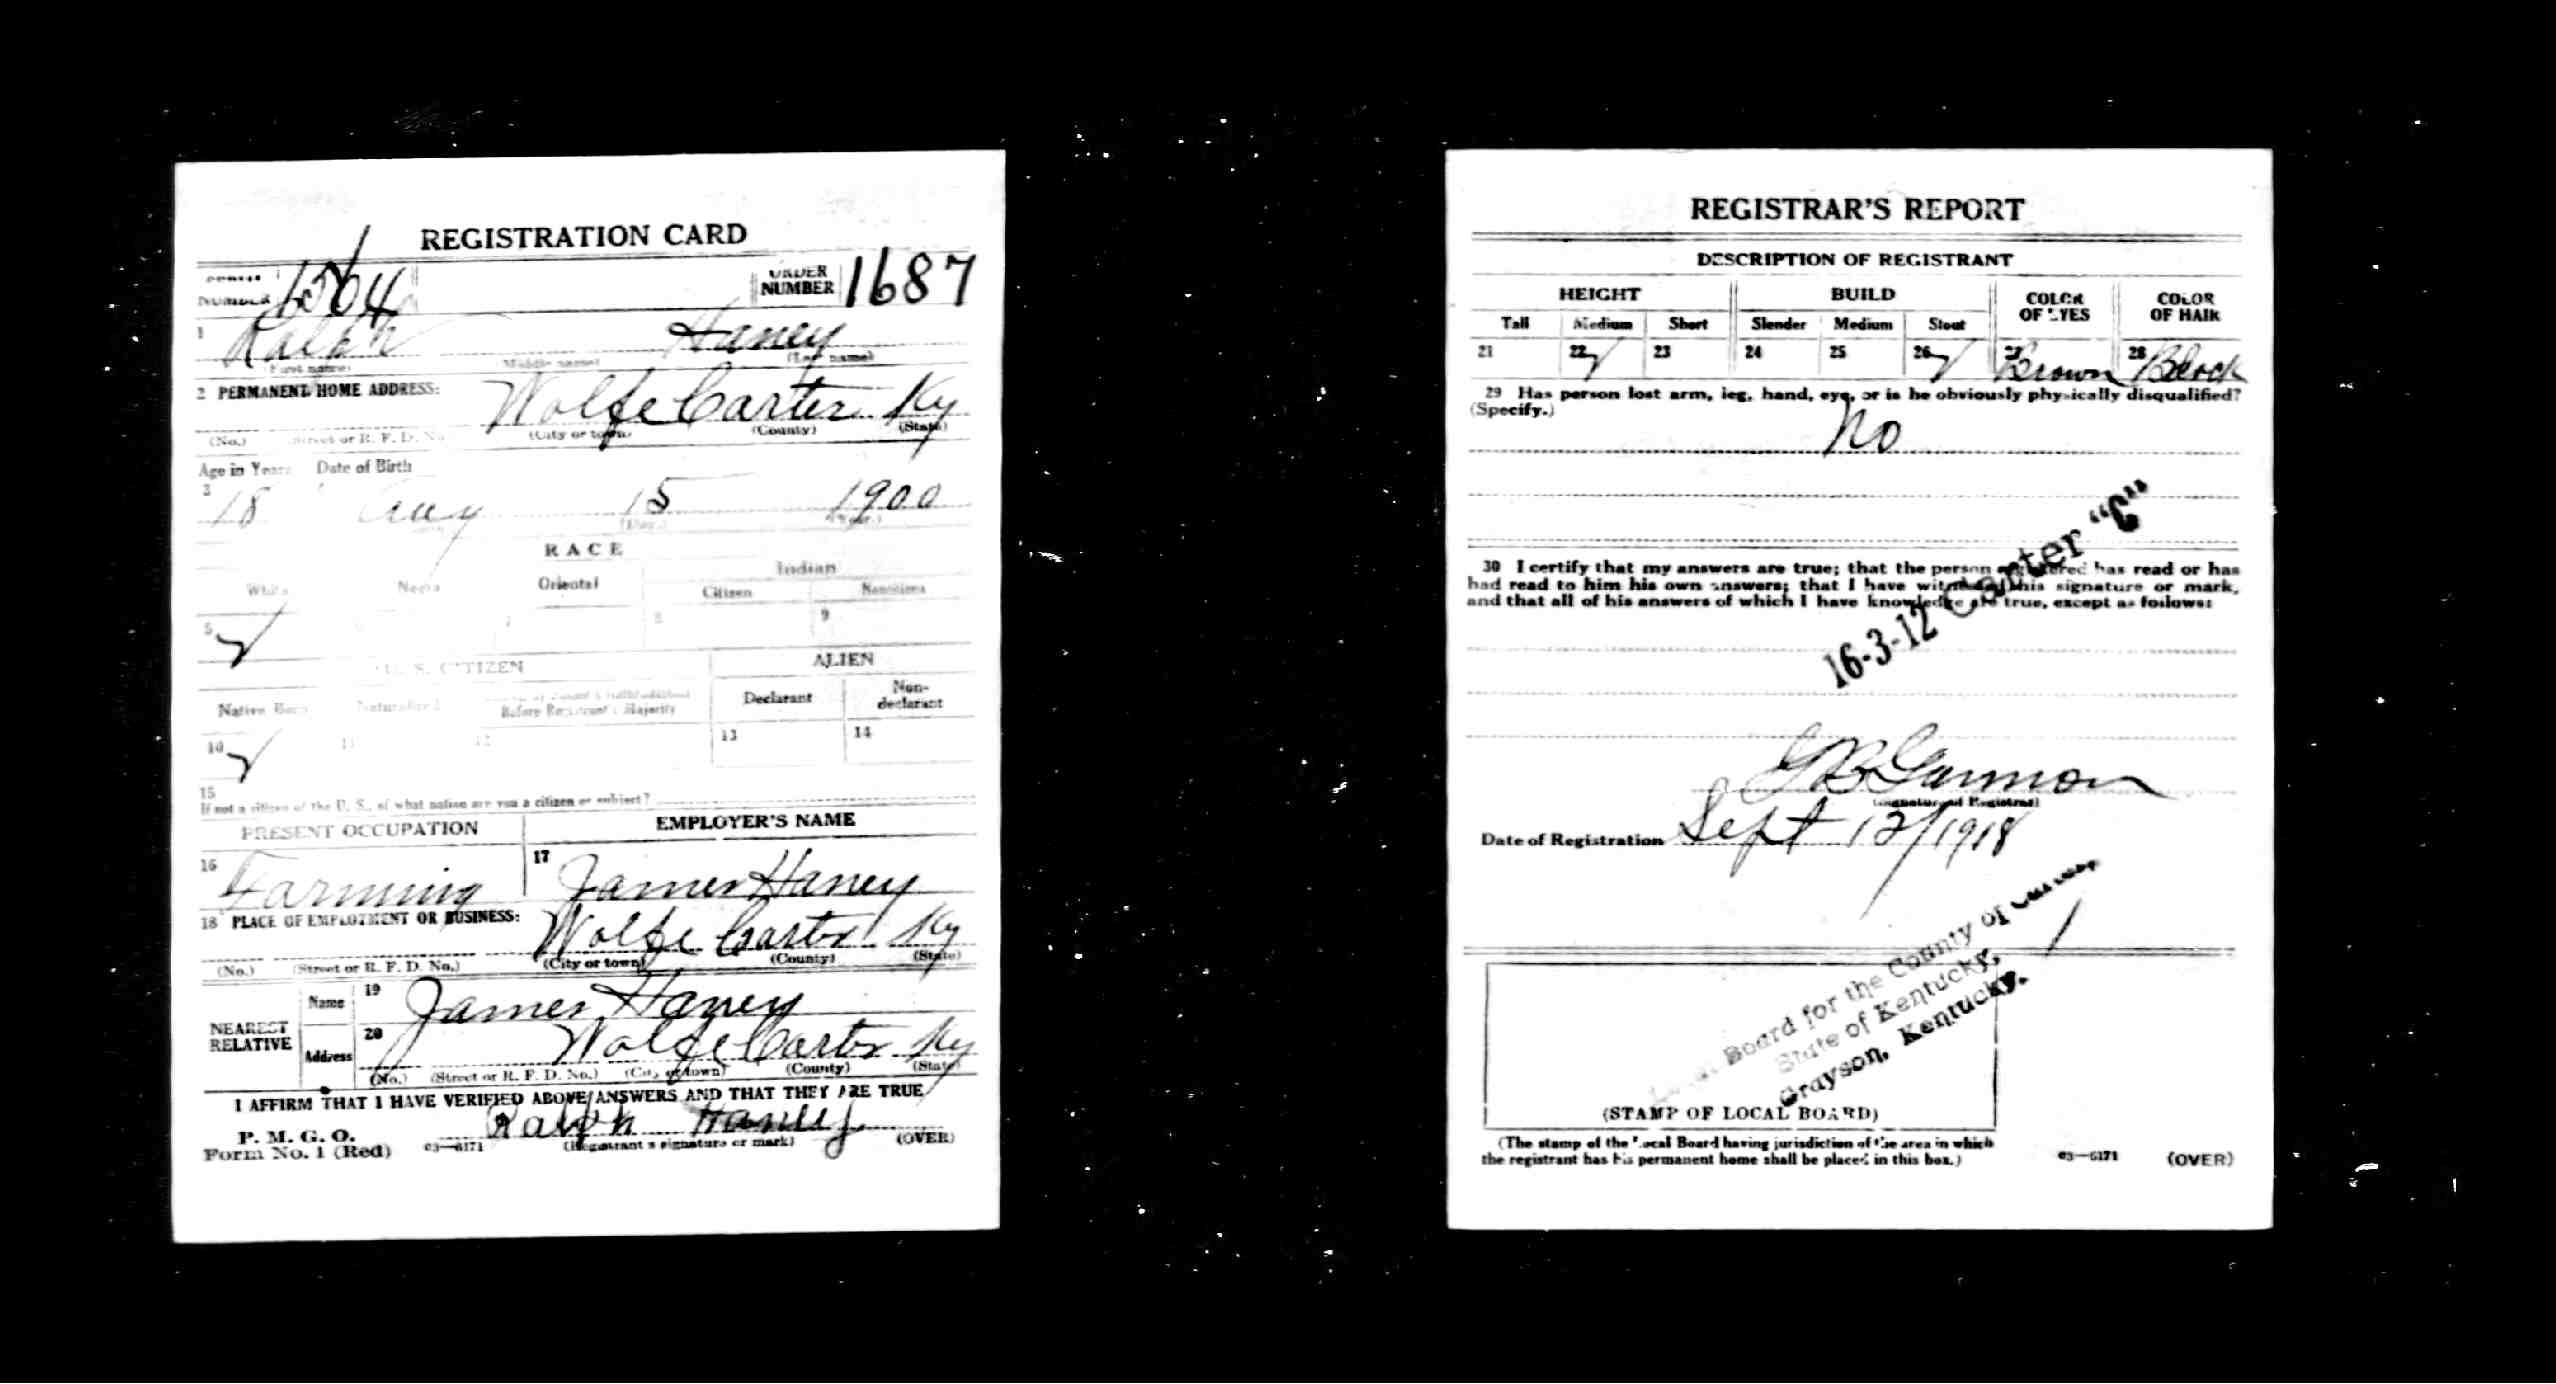 REGISTRATION CARD
NUMBER 1564 ORDER NUMBER 1687
1 Ralph Haney
(First name) (Middle name) (Last name)
2 PERMANENT HOME ADDRESS: Wolfe Carter Ky
(No.) (Street or R. F. D. No.) (City or town) (County) (State)
Age in Years Date of Birth
3 18 Aug 15 1900
(Day.) (Year.)
RACE
White Negro Oriental Indian
Citizen Noncitizen
5 7 8 9
U. S. CITIZEN ALIEN
Native Born Naturalized Before Registrant's Majority Declarant Non-declarant
10 11 12 13 14
15
If not a citizen of the U. S., of what nation are you a citizen or subject?
PRESENT OCCUPATION EMPLOYER'S NAME
16 Farming 17 James Haney
18 PLACE OF EMPLOYMENT OR BUSINESS: Wolfe Carter Ky
(No.) (Street or R. F. D. No.) (City or town) (County) (State)
NEAREST RELATIVE
Name 19 James Haney
Address 20 Wolfe Carter Ky
(No.) (Street or R. F. D. No.) (City or town) (County) (State)
I AFFIRM THAT I HAVE VERIFIED ABOVE ANSWERS AND THAT THEY ARE TRUE
P. M. G. O.
Form No. 1 (Red) 03—6171 Ralph Haney (OVER)
(Registrant's signature or mark)
REGISTRAR'S REPORT
DESCRIPTION OF REGISTRANT
HEIGHT BUILD COLOR OF EYES COLOR OF HAIR
Tall Medium Short Slender Medium Stout
21 22 23 24 25 26 27 Brown 28 Black
29 Has person lost arm, leg, hand, eye, or is he obviously physically disqualified?
(Specify.) No
30 I certify that my answers are true; that the person registered has read or has
had read to him his own answers; that I have witnessed his signature or mark,
and that all of his answers of which I have knowledge are true, except as follows:
16-3-12 Carter "C"
G B Gannon
(Signature of Registrar)
Date of Registration Sept 12/1918
Local Board for the County of Carter
State of Kentucky,
Grayson, Kentucky.
(STAMP OF LOCAL BOARD)
(The stamp of the Local Board having jurisdiction of the area in which
the registrant has his permanent home shall be placed in this box.)
03—6171 (OVER)